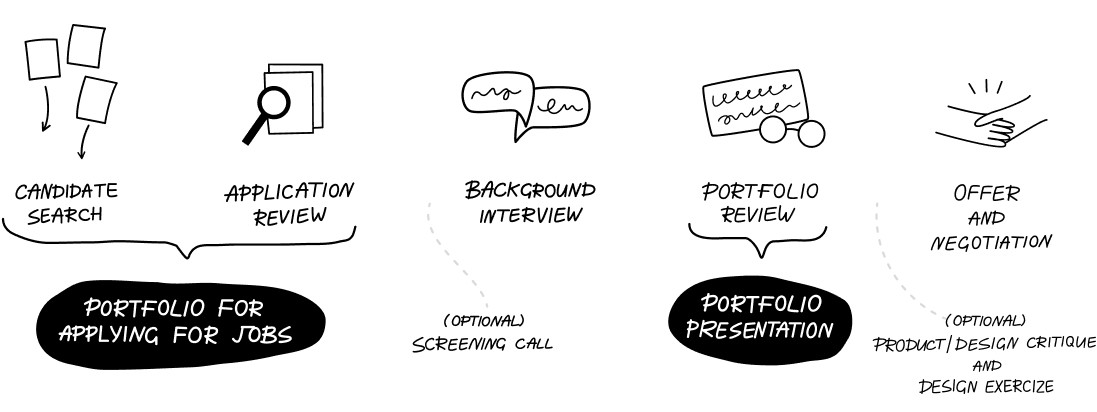 CANDIDATE
SEARCH
APPLICATION
REVIEW
BACKGROUND
INTERVIEW
PORTFOLIO
REVIEW
OFFER
AND
NEGOTIATION
PORTFOLIO FOR
APPLYING FOR JOBS
(OPTIONAL)
SCREENING CALL
PORTFOLIO
PRESENTATION
(OPTIONAL)
PRODUCT/DESIGN CRITIQUE
AND
DESIGN EXERCIZE